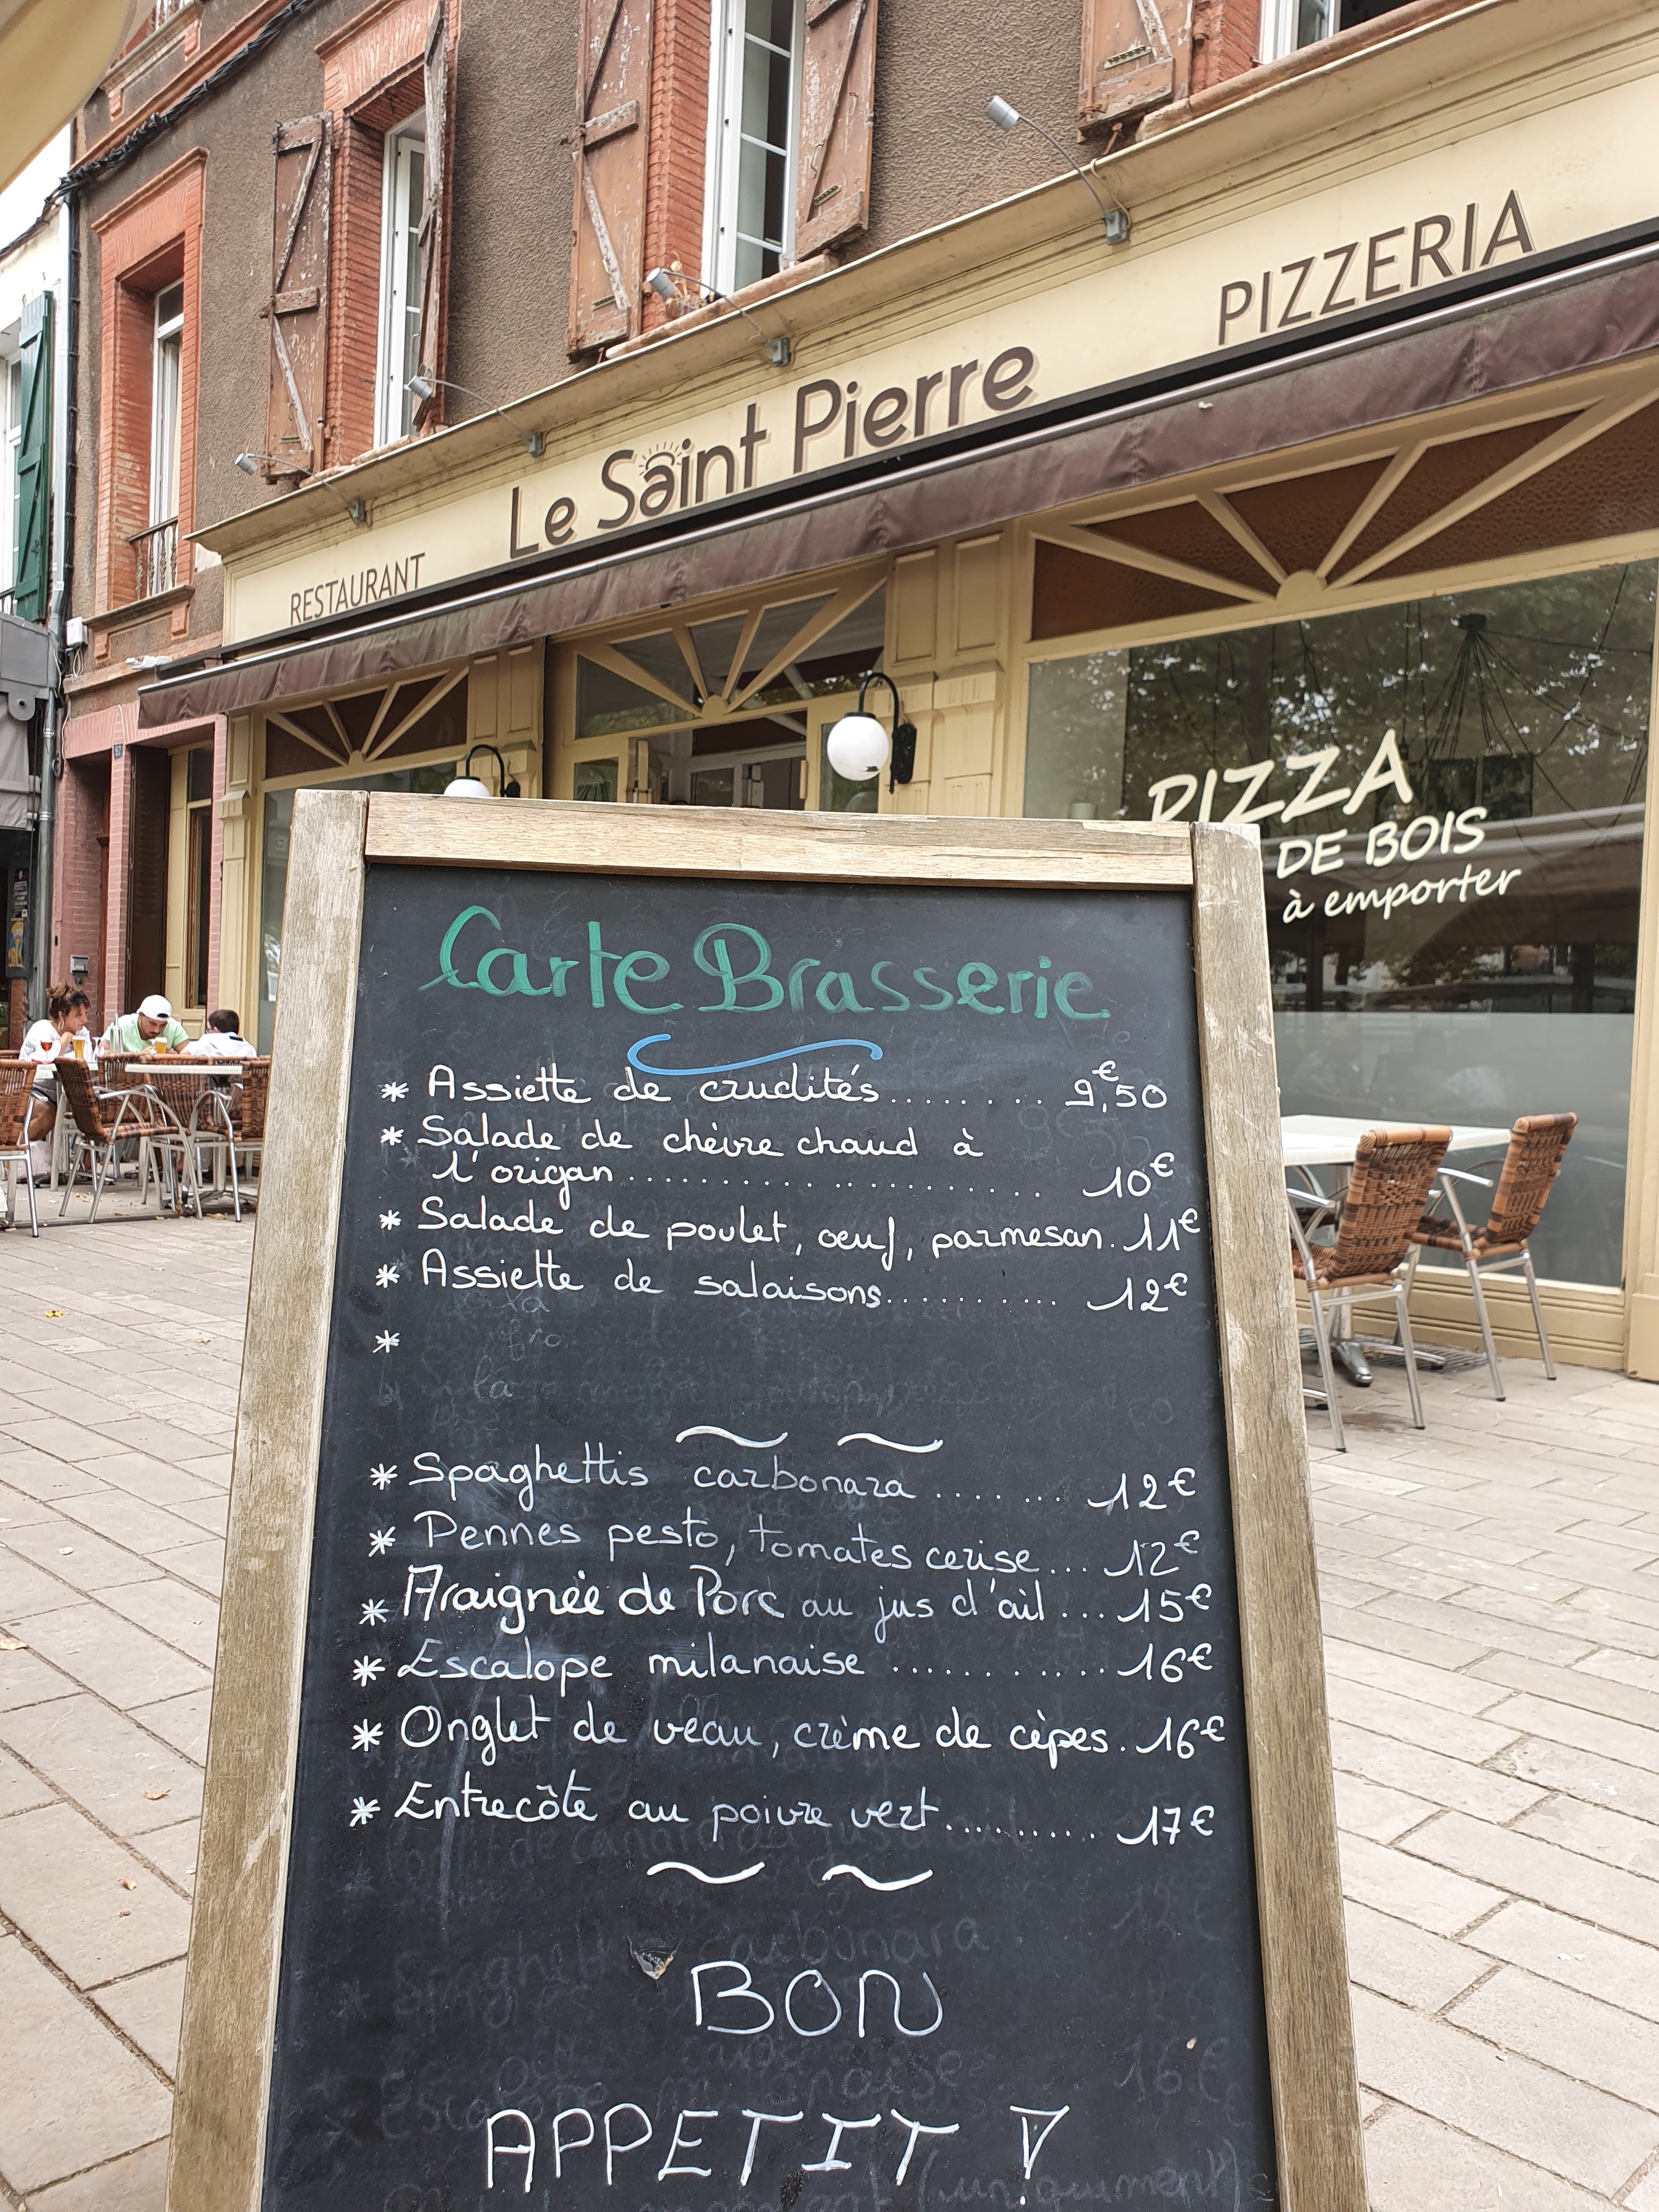 PIZZERIA
Le Saint Pierre
RESTAURANT
PIZZA
DE BOIS
à emporter
Carte Brasserie
* Assiette de crudités........ 9,€50
* Salade de chèvre chaud à
l'origan...................... 10€
* Salade de poulet, oeuf, parmesan. 11€
* Assiette de salaisons.......... 12€
*
* Spaghettis carbonara....... 12€
* Pennes pesto, tomates cerise... 12€
* Araignée de Porc au jus d'ail... 15€
* Escalope milanaise ........... 16€
* Onglet de veau, crème de cèpes. 16€
* Entrecôte au poivre vert.......... 17€
BON
APPETIT !